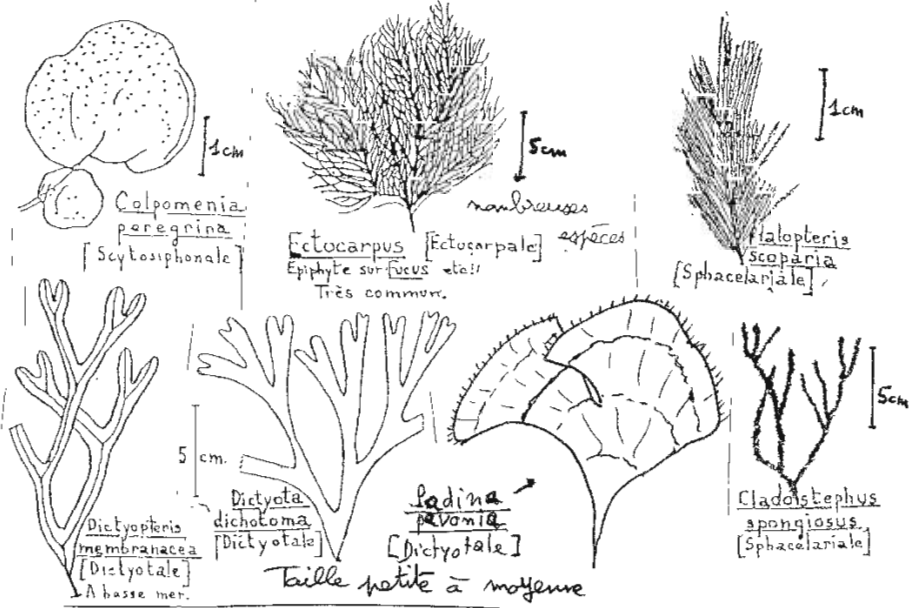 1cm
Colpomenia
peregrina
[Scytosiphonale]
5cm
nombreuses
espèces
Ectocarpus [Ectocarpale]
Epiphyte sur Fucus etc!!
Très commun.
1cm
Halopteris
scoparia
[Sphacelariale]
Dictyopteris
membranacea
[Dictyotale]
A basse mer.
5 cm.
Dictyota
dichotoma
[Dictyotale]
Padina
pavonia
[Dictyotale]
5cm
Cladostephus
spongiosus
[Sphacelariale]
Taille petite à moyenne